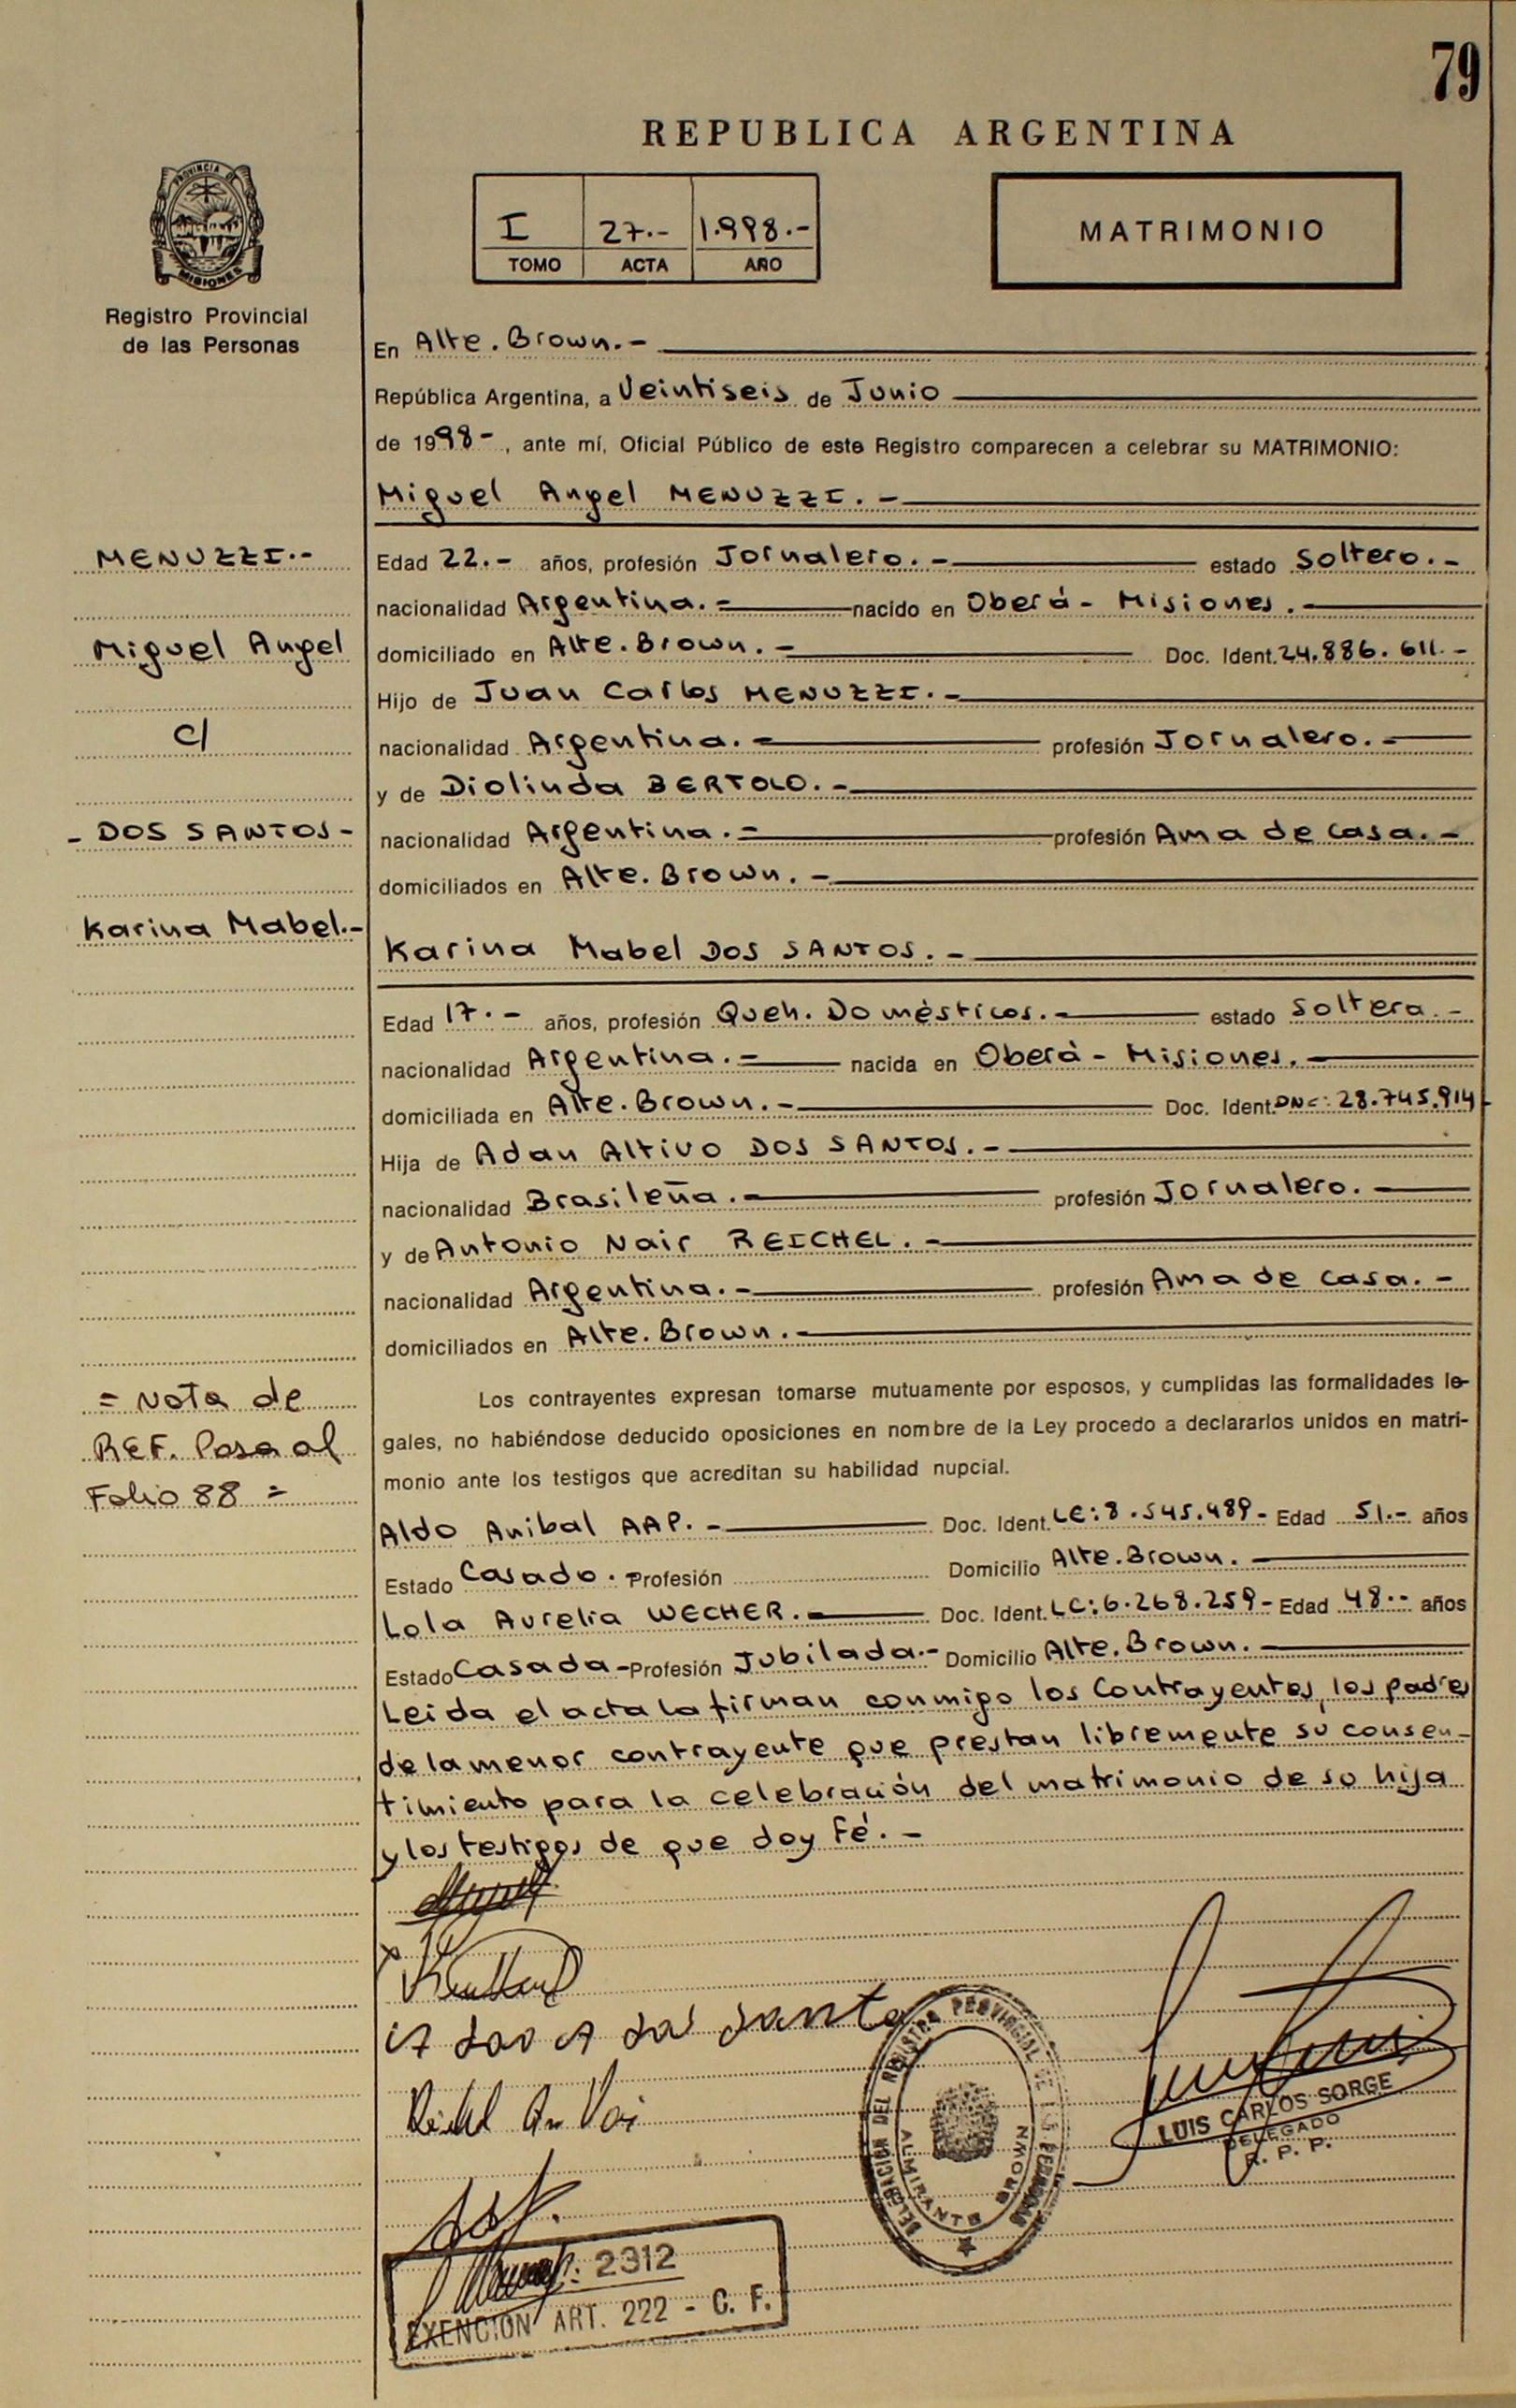 79
REPUBLICA ARGENTINA
I 27.- 1.998.-
TOMO ACTA AÑO
MATRIMONIO
PROVINCIA DE
MISIONES
Registro Provincial
de las Personas
En Alte. Brown.-
República Argentina, a Veintiseis de Junio
de 1998-, ante mí, Oficial Público de este Registro comparecen a celebrar su MATRIMONIO:
Miguel Angel MENUZZI.-
MENUZZI.-
Miguel Angel
c/
- DOS SANTOS -
Karina Mabel.-
Edad 22.- años, profesión Jornalero.- estado Soltero.-
nacionalidad Argentina.- nacido en Oberá - Misiones.-
domiciliado en Alte. Brown.- Doc. Ident. 24.886.611.-
Hijo de Juan Carlos MENUZZI.-
nacionalidad Argentina.- profesión Jornalero.-
y de Diolinda BERTOLO.-
nacionalidad Argentina.- profesión Ama de casa.-
domiciliados en Alte. Brown.-
Karina Mabel DOS SANTOS.-
Edad 17.- años, profesión Queh. Domésticos.- estado Soltera.-
nacionalidad Argentina.- nacida en Oberá - Misiones.-
domiciliada en Alte. Brown.- Doc. Ident. 28.745.914-
Hija de Adan Altivo DOS SANTOS.-
nacionalidad Brasileña.- profesión Jornalero.-
y de Antonio Nair REICHEL.-
nacionalidad Argentina.- profesión Ama de casa.-
domiciliados en Alte. Brown.-
= Nota de
REF. Pasa al
Folio 88 =
Los contrayentes expresan tomarse mutuamente por esposos, y cumplidas las formalidades le-
gales, no habiéndose deducido oposiciones en nombre de la Ley procedo a declararlos unidos en matri-
monio ante los testigos que acreditan su habilidad nupcial.
Aldo Anibal AAP.- Doc. Ident. LE: 8.545.489- Edad 51.- años
Estado Casado.- Profesión Domicilio Alte. Brown.-
Lola Aurelia WECHER.- Doc. Ident. LC: 6.268.259- Edad 48.- años
Estado Casada - Profesión Jubilada.- Domicilio Alte. Brown.-
Leida el acta la firman conmigo los Contrayentes, los padres
de la menor contrayente que prestan libremente su consen-
timiento para la celebración del matrimonio de su hija
y los testigos de que doy Fé.-
DELEGACION DEL REGISTRO PROVINCIAL DE LAS PERSONAS
ALMIRANTE BROWN
LUIS CARLOS SORGE
DELEGADO
R. P. P.
2312
EXENCION ART. 222 - C. F.